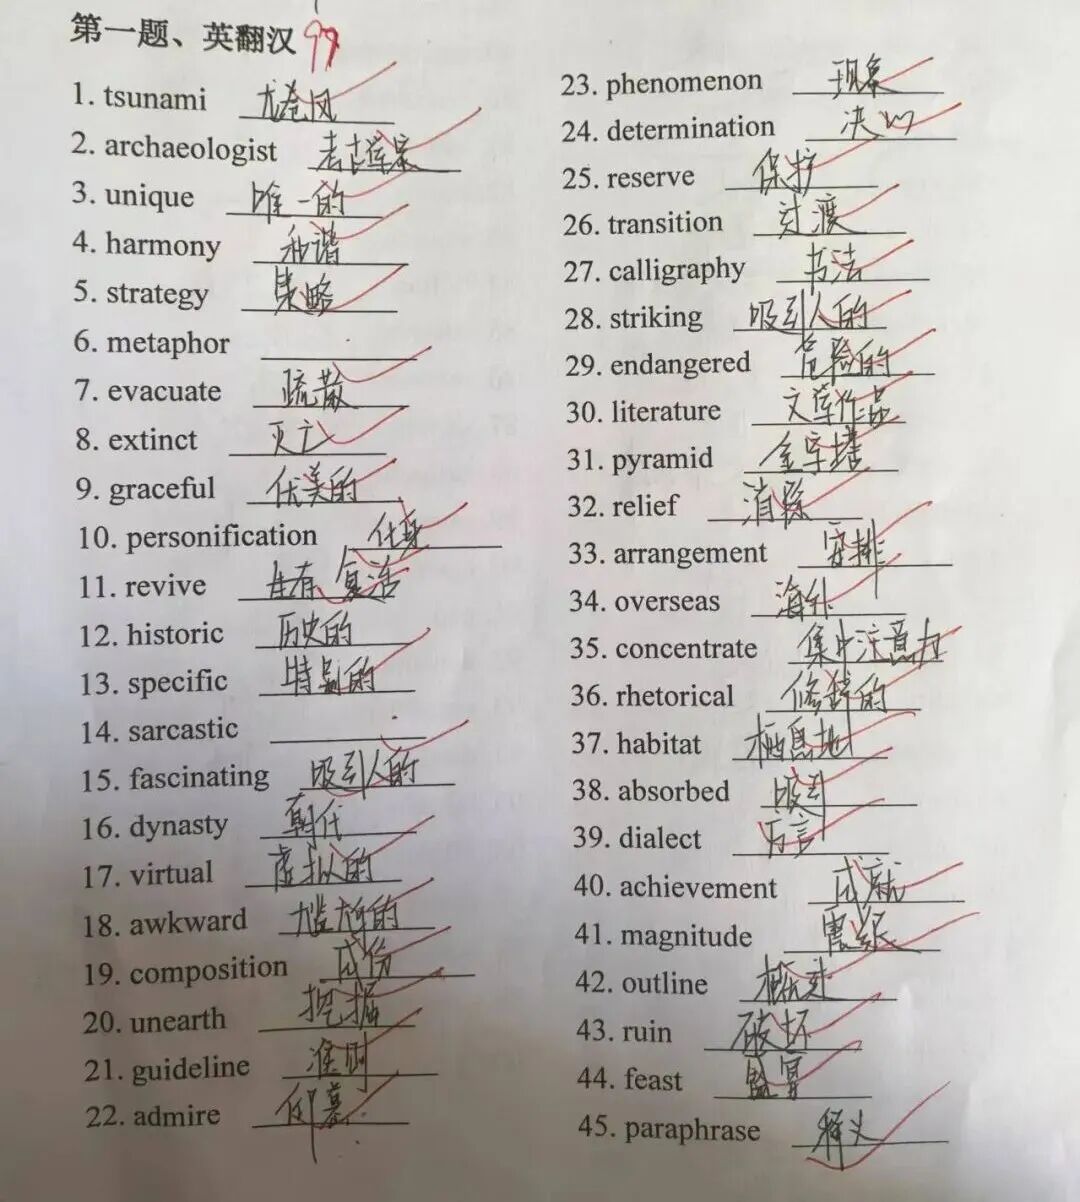 第一题、英翻汉 97
1. tsunami 龙卷风
2. archaeologist 考古学家
3. unique 唯一的
4. harmony 和谐
5. strategy 策略
6. metaphor
7. evacuate 疏散
8. extinct 灭亡
9. graceful 优美的
10. personification 化身
11. revive 生存 复活
12. historic 历史的
13. specific 特别的
14. sarcastic
15. fascinating 吸引人的
16. dynasty 朝代
17. virtual 虚拟的
18. awkward 尴尬的
19. composition 成份
20. unearth 挖掘
21. guideline 准则
22. admire 仰慕
23. phenomenon 现象
24. determination 决心
25. reserve 保护
26. transition 过渡
27. calligraphy 书法
28. striking 吸引人的
29. endangered 危险的
30. literature 文学作品
31. pyramid 金字塔
32. relief 消除
33. arrangement 安排
34. overseas 海外
35. concentrate 集中注意力
36. rhetorical 修辞的
37. habitat 栖息地
38. absorbed 吸引
39. dialect 方言
40. achievement 成就
41. magnitude 震级
42. outline 概述
43. ruin 破坏
44. feast 盛宴
45. paraphrase 释义